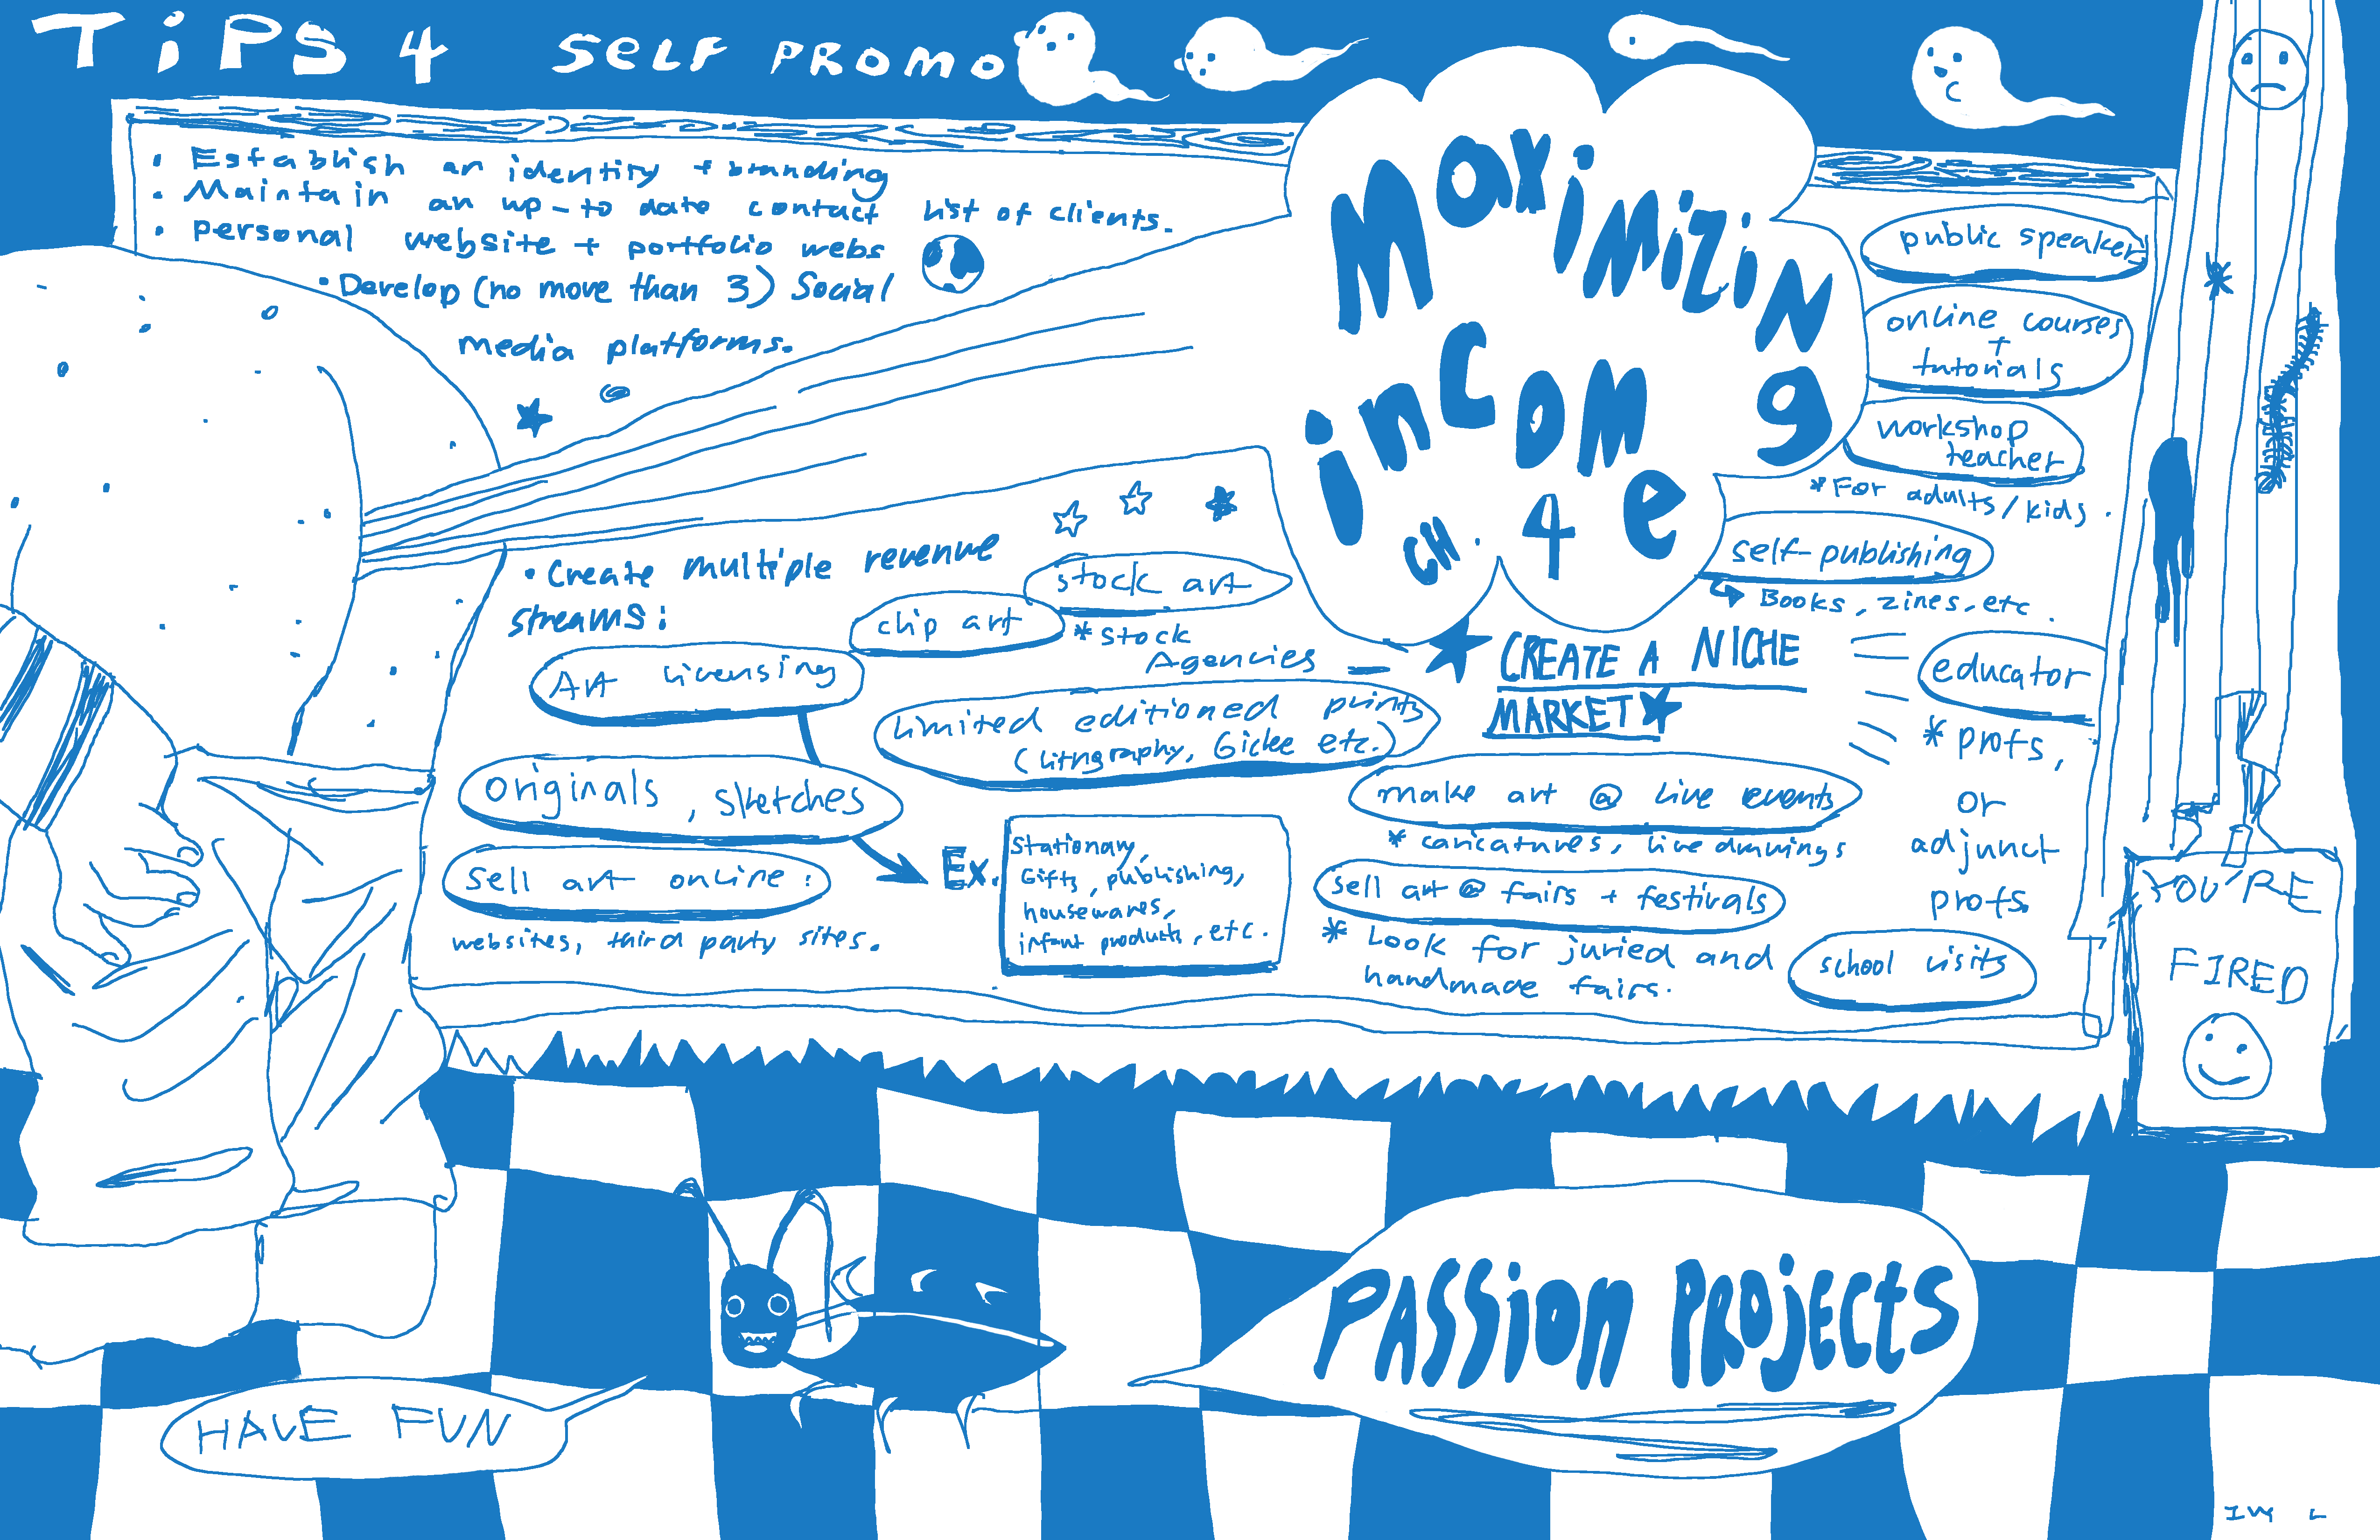 TiPS 4 SELF PROMO
• Establish an identity + branding
• Maintain an up-to date contact list of clients.
• personal website + portfolio webs
• Develop (no more than 3) Social
media platforms.
Maximizing
income
CH. 4
• Create multiple revenue
streams:
stock art
clip art
* Stock
Agencies
Art licensing
limited editioned prints
(lithgraphy, Giclee etc.)
originals, sketches
Ex.
Stationary,
Gifts, publishing,
housewares,
infant products, etc.
sell art online:
websites, third party sites.
public speaker
online courses
+
tutorials
workshop
teacher
*For adults/kids.
self-publishing
Books, zines, etc.
CREATE A NICHE
MARKET
educator
* profs,
or
adjunct
profs.
make art @ live events
* caricatures, live drawings
sell art @ fairs + festivals
* Look for juried and
handmade fairs.
school visits
YOU'RE
FIRED
HAVE FUN
PASSion PROjECts
Ivy L